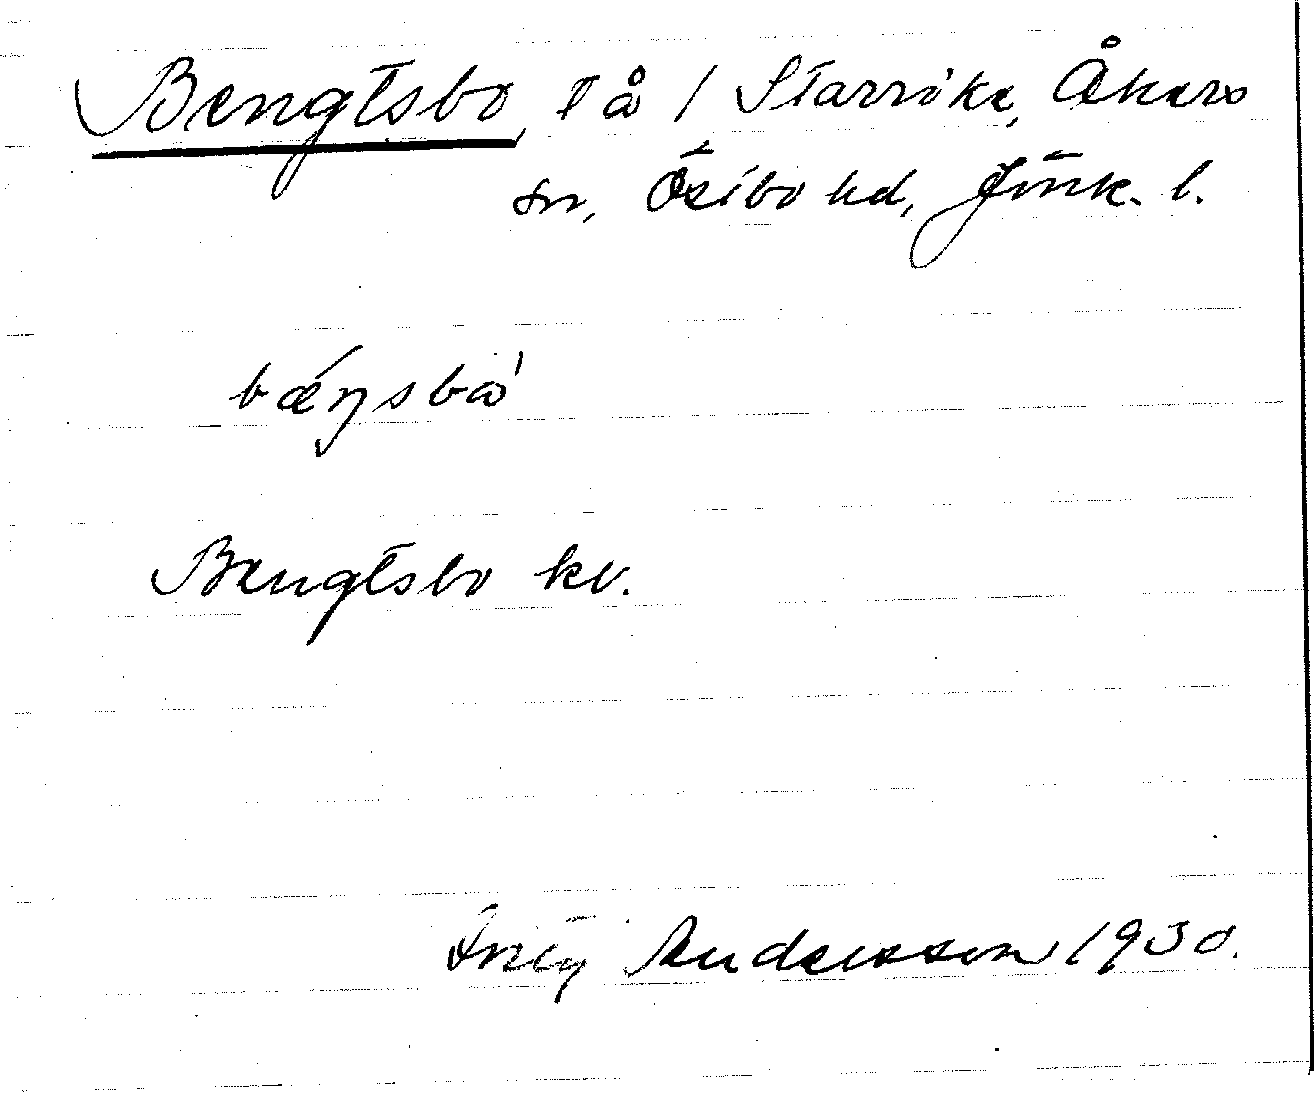 Bengtsbo, l å / Starrike, Åkers
sn, Östbo hd, Jönk. l.
bǽŋsbω'
Bengtsbo kv.
Andersson 1930.